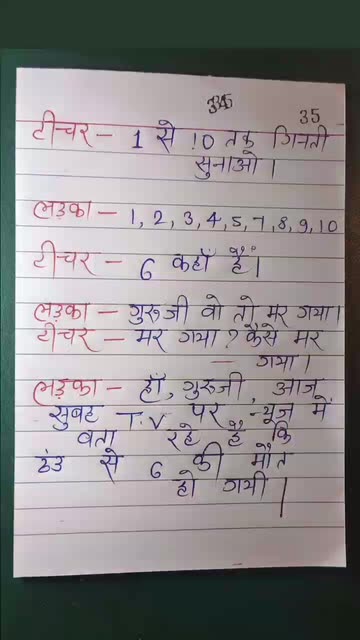 35
टीचर - 1 से 10 तक गिनती
सुनाओ।
लड़का - 1, 2, 3, 4, 5, 7, 8, 9, 10
टीचर - 6 कहाँ हैं।
लड़का - गुरुजी वो तो मर गया।
टीचर - मर गया? कैसे मर
गया।
लड़का - हाँ, गुरुजी, आज
सुबह T.V. पर न्यूज में
बता रहे हैं कि
ठंड से 6 की मौत
हो गयी।